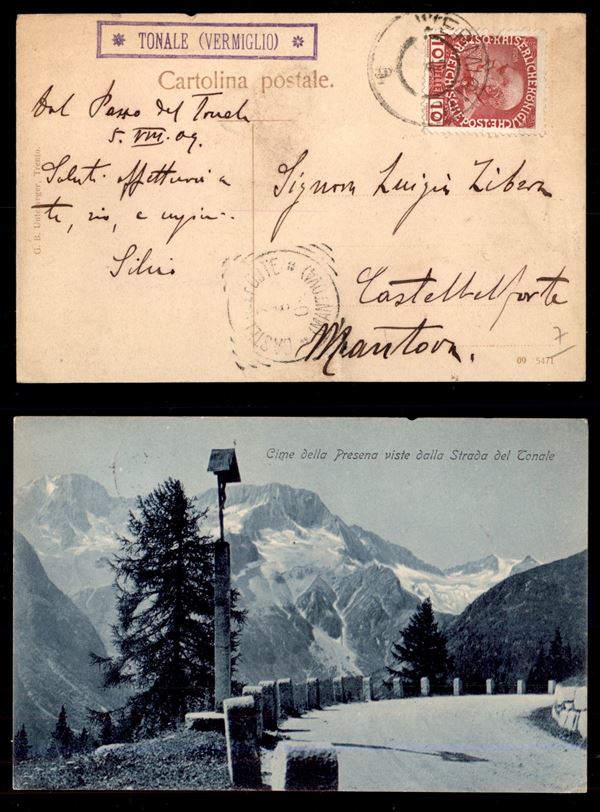 * TONALE (VERMIGLIO) *
Cartolina postale.
Dal Passo del Tonale
5. VIII. 09.
Saluti affettuosi a
te, zio, e cugini.
Silvio
G. B. Unterveger, Trento.
KAISERLICHE KÖNIGLICHE
ÖSTERREICHISCHE POST
10 HELLER 10
Signora Luigia Libera
Castelbelforte
Mantova.
(MANTOVA)
7
09 15471
Cime della Presena viste dalla Strada del Tonale